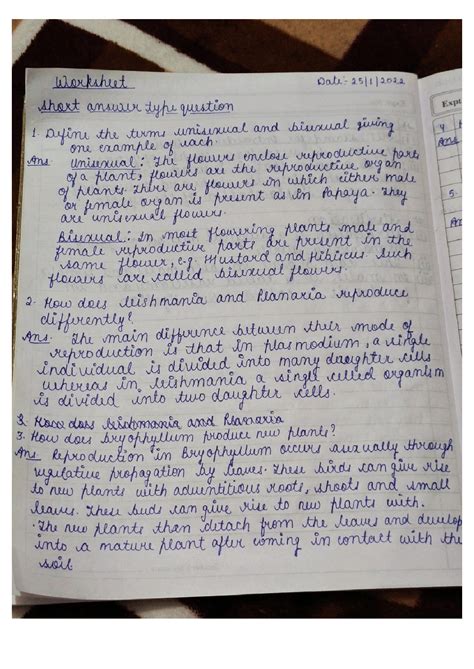 Worksheet
Date:- 25/1/2022
Short answer type question
1. Define the terms unisexual and bisexual giving
one example of each.
Ans Unisexual: The flowers enclose reproductive parts
of a plant, flowers are the reproductive organ
of plants. There are flowers in which either male
or female organ is present as in Papaya. They
are unisexual flowers.
Bisexual: In most flowering plants male and
female reproductive parts are present in the
same flower, e.g. Mustard and Hibiscus. Such
flowers are called bisexual flowers.
2. How does leishmania and Planaria reproduce
differently?
Ans. The main difference between their mode of
reproduction is that in plasmodium, a single
individual is divided into many daughter cells
whereas in leishmania a single celled organism
is divided into two daughter cells.
3. How does leishmania and Planaria
3. How does bryophyllum produce new plants?
Ans Reproduction in Bryophyllum occurs asexually through
vegetative propagation by leaves. These birds can give rise
to new plants with adventitious roots, shoots and small
leaves. These buds can give rise to new plants with.
The new plants then detach from the leaves and develop
into a mature plant after coming in contact with the
soil
Expt
4
Ans
5.